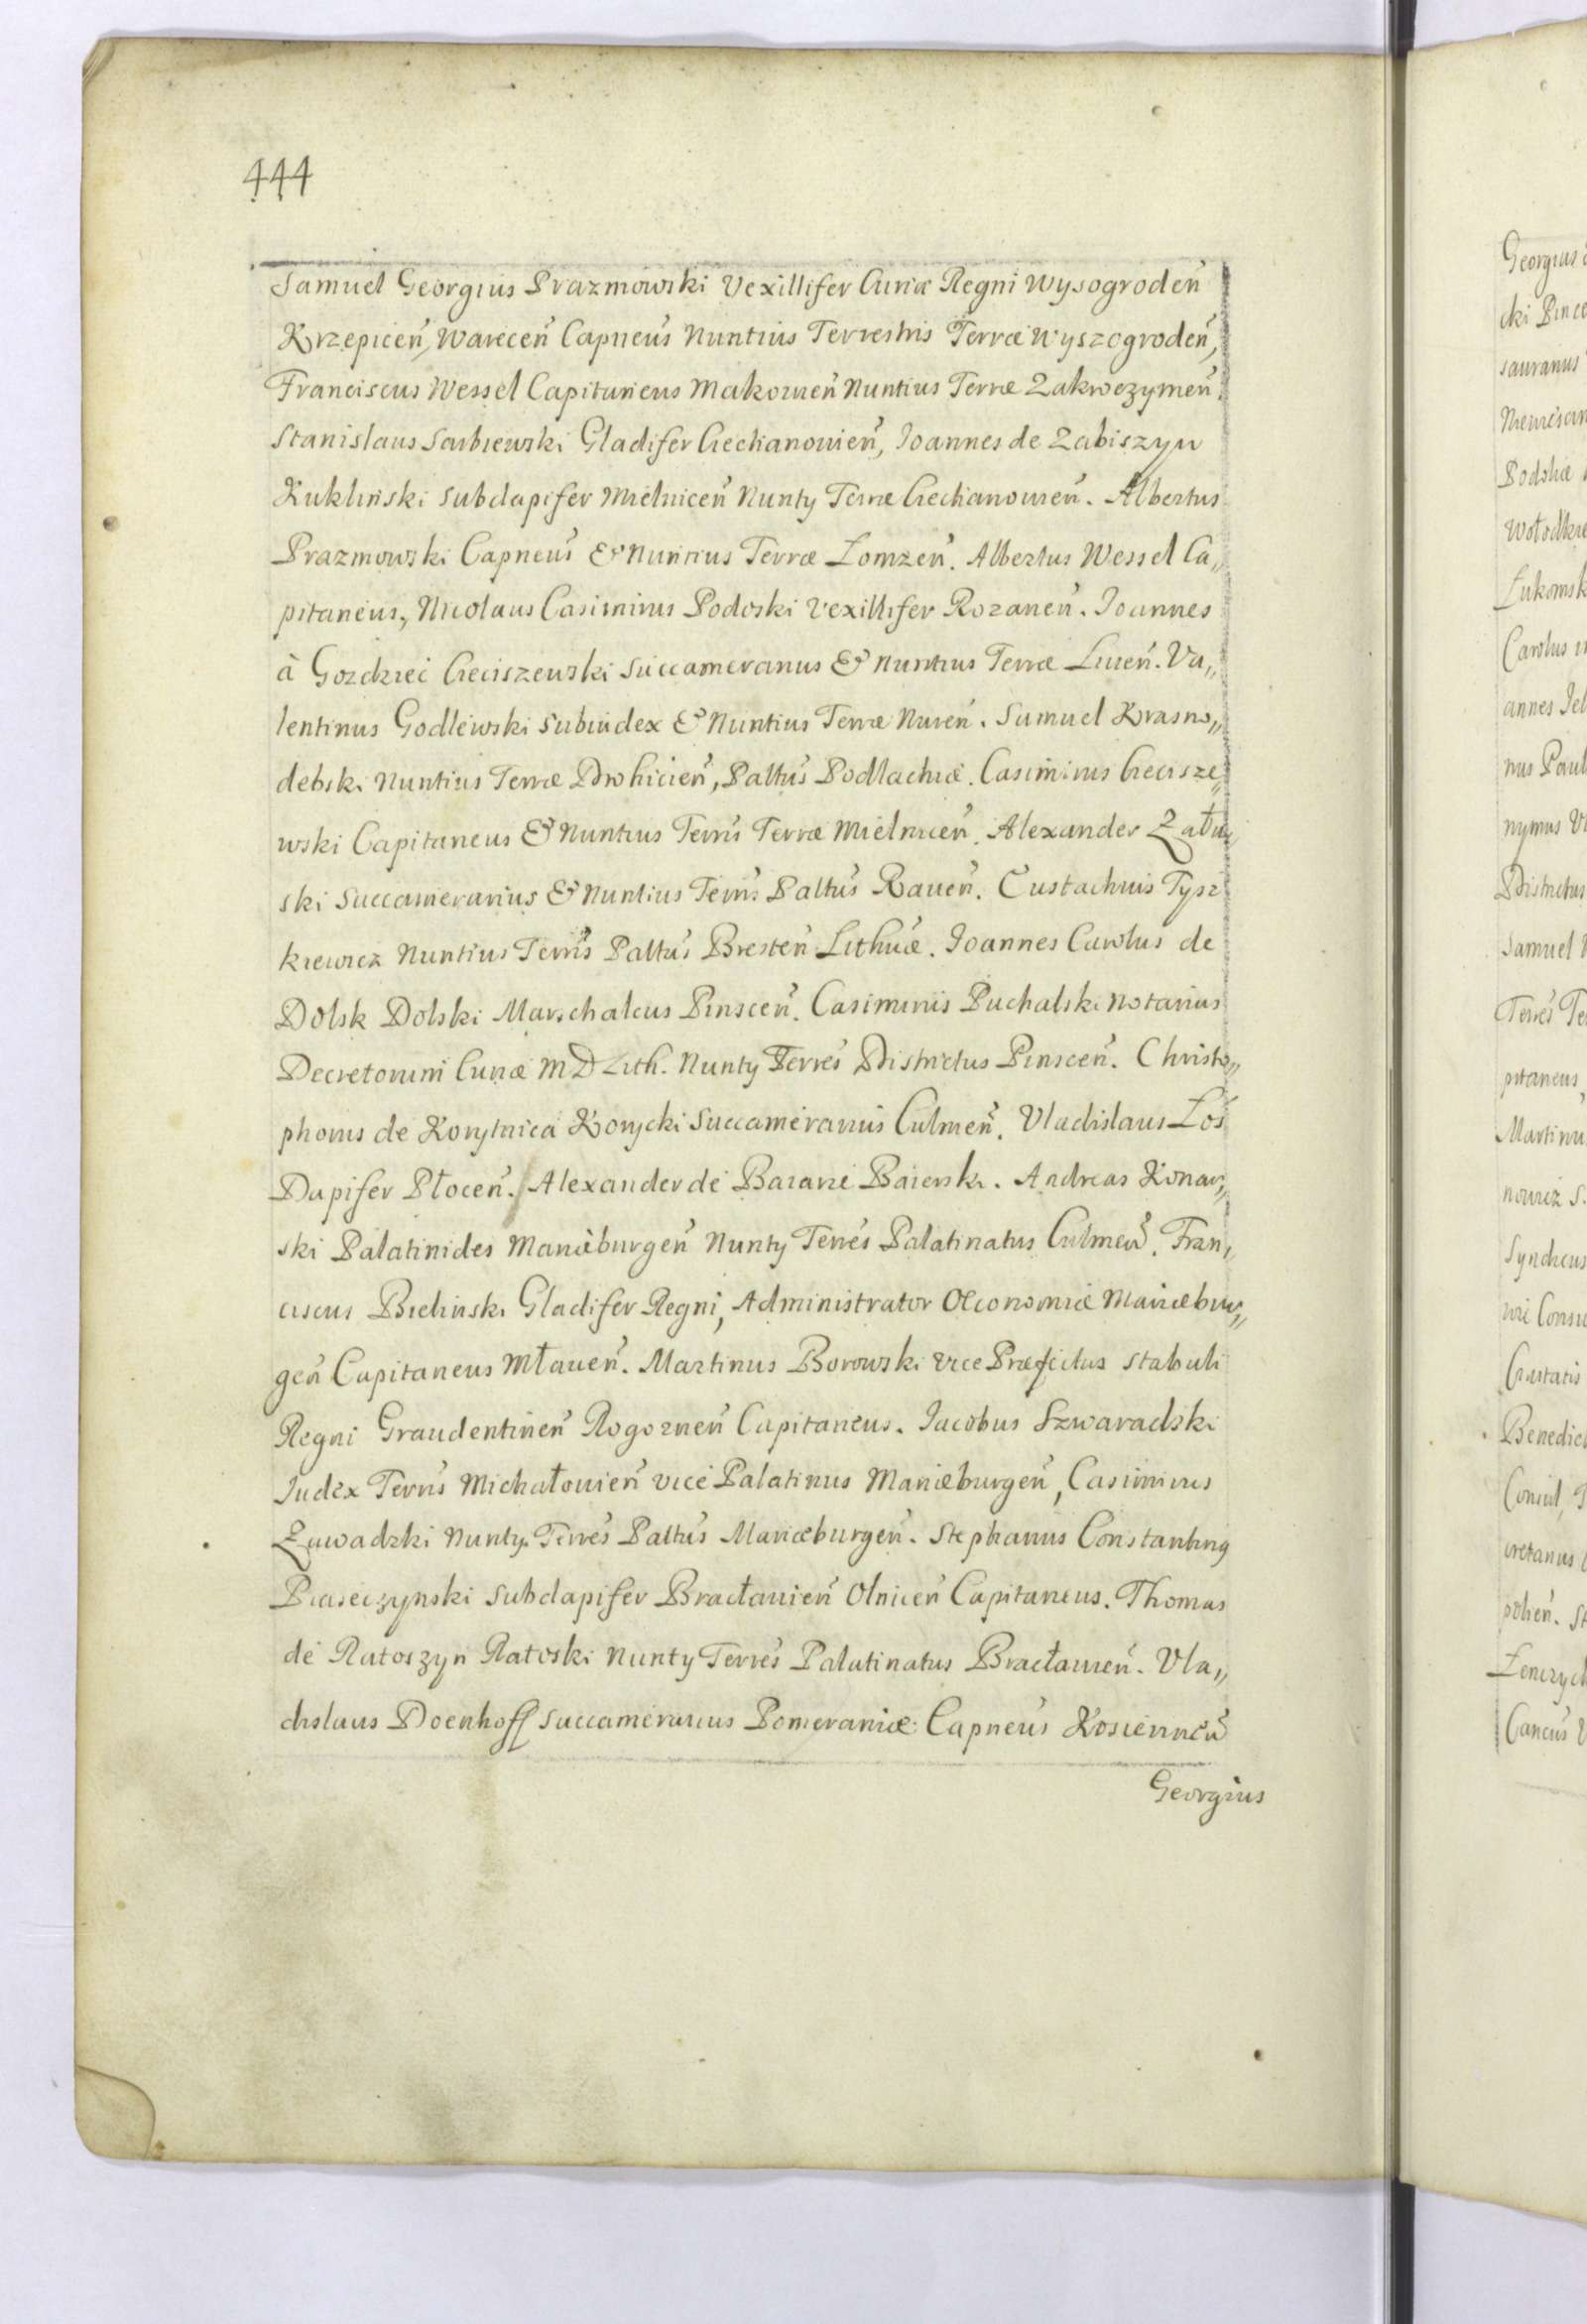 444
Samuel Georgius Prazmowski Vexillifer Curiæ Regni Wysogroden̄
Krzepicen̄, Warecen̄ Capneus̄ Nuntius Terrestris Terræ Wyszogroden̄,
Franciscus Wessel Capitaneus Makovien̄ Nuntius Terræ Zakroczymen̄.
Stanislaus Sarbiewski Gladifer Ciechanovien̄, Joannes de Zabiszyn
Kukliński Subdapifer Mielnicen̄ Nunty Terræ Ciechanovien̄. Albertus
Prazmowski Capneus̄ & Nuntius Terræ Łomzen̄. Albertus Wessel Ca„
pitaneus, Nicolaus Casimirus Podoski Vexillifer Rozanen̄. Joannes
à Gozdziec Cieciszewski Succameranus & Nuntius Terræ Liven̄. Va„
lentinus Godlewski Subiudex & Nuntius Terræ Nuren̄. Samuel Krasno„
debski Nuntius Terræ Drohicien̄, Paltus̄ Podlachiæ. Casimirus Ciecisze„
wski Capitaneus & Nuntius Terris̄ Terræ Mielnicen̄. Alexander Zału„
ski Succamerarius & Nuntius Terris̄ Paltus̄ Raven̄. Eustachius Tysz
kiewicz Nuntius Terris̄ Paltus̄ Bresten̄ Lithuæ. Joannes Carolus de
Dolsk Dolski Marschalcus Pinscen̄. Casimirus Puchalski Notarius
Decretorum Curiæ M D Lith. Nunty Terres̄ Districtus Pinscen̄. Christo„
phorus de Korytnica Korycki Succamerarius Culmen̄. Vladislaus Łoś
Dapifer Płocen̄. Alexander de Bazarie Baierski. Andreas Konar„
ski Palatinides Mariæburgen̄ Nunty Terres̄ Palatinatus Culmen̄. Fran„
ciscus Bielinski Gladifer Regni, Administrator Œconomiæ Mariæbur„
gen̄ Capitaneus Młaven̄. Martinus Borowski Vice Præfectus Stabuli
Regni Graudentinen̄ Rogoznen̄ Capitaneus. Jacobus Szwaradzki
Judex Terris̄ Michałovien̄ vice Palatinus Mariæburgen̄, Casimirus
Zawadzki Nunty Terres̄ Paltus̄ Mariæburgen̄. Stephanus Constantinꝯ
Piaseczynski Subdapifer Bracłavien̄ Olnicen̄ Capitaneus. Thomas
de Ratoszyn Ratoski Nunty Terres̄ Palatinatus Bracłavien̄. Vla„
dislaus Doenhoff Succamerarius Pomeraniæ Capneus̄ Kosiennen̄
Georgius